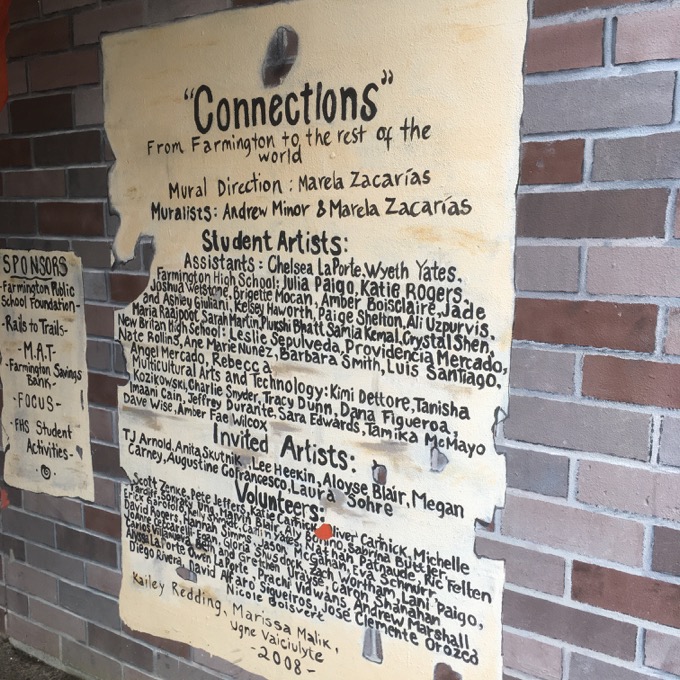 "Connections"
From Farmington to the rest of the
world
Mural Direction : Marela Zacarías
Muralists: Andrew Minor & Marela Zacarías
Student Artists:
Assistants : Chelsea LaPorte, Wyeth Yates.
Farmington High School: Julia Paigo, Katie Rogers,
Joshua Welstone, Brigette Mocan, Amber Boisclaire, Jade
and Ashley Giuliani, Kelsey Haworth, Paige Shelton, Ali Uzpurvis,
Maria Raajpoot, Sarah Martin, Plukshi Bhatt, Samia Kemal, Crystal Shen,
New Britan High School: Leslie Sepulveda, Providencia Mercado,
Nate Rollins, Ane Marie Nuñez, Barbara Smith, Luis Santiago,
Angel Mercado, Rebecca
Multicultural Arts and Technology: Kimi Dettore, Tanisha
Kozikowski, Charlie Snyder, Tracy Dunn, Dana Figueroa,
Imaani Cain, Jeffrey Durante, Sara Edwards, Tamika McMayo
Dave Wise, Amber Fae Wilcox
Invited Artists:
TJ Arnold, Anita Skutnik, Lee Heekin, Aloyse Blair, Megan
Carney, Augustine Gofrancesco, Laura Sohre
Volunteers:
Scott Zenke, Pete Jeffers, Katie Carnick, Oliver Carnick, Michelle
Sabrina Butler,
Nathan Patnaude, Ric Felten
David Rogers, Hannah Simms, Jason McGahan, Eva Schnurr,
Zach Wortham, Lani Paigo,
and Gretchen Drayse, Caron Shanahan
Alyssa La Porte, Owen LaPorte, Prachi Vidwans, Andrew Marshall
Diego Rivera, David Alfaro Siqueiros, José Clemente Orozco
Nicole Boisvert
Kailey Redding, Marissa Malik,
Ugne Vaiciulyte
-2008-
SPONSORS
-Farmington Public
School Foundation-
-Rails to Trails-
-M.A.T-
-Farmington Savings
Bank-
-FOCUS-
-FHS Student
Activities-